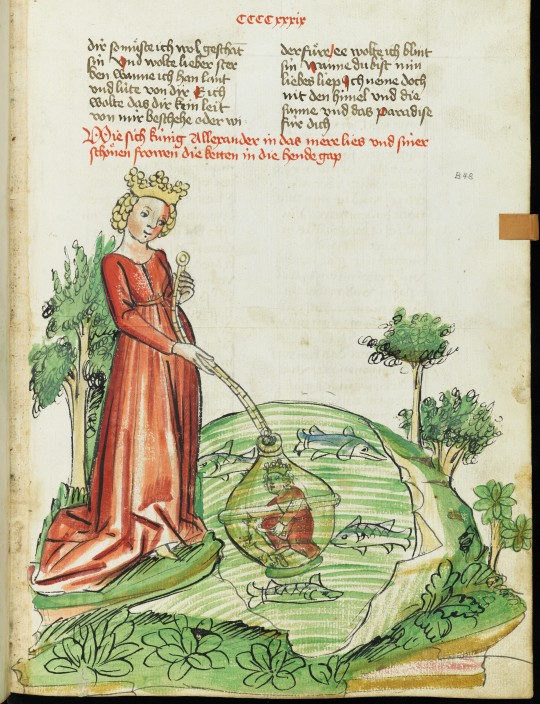 CCCCxxxix
dir so müste ich wol
sin Und wolte lieber ster
ben wanne ich han lant
und lüte von dir E ich
wolte das dir kein leit
von mir beschehe oder wi
derfüre Ee wolte ich blint
sin Wanne du bist min
liebes liep Ich neme doch
nit den himel und die
sunne und das paradise
für dich
Wie sich künig Allexander in das mere lies und siner
schönen frowen die ketten in die hende gap
848